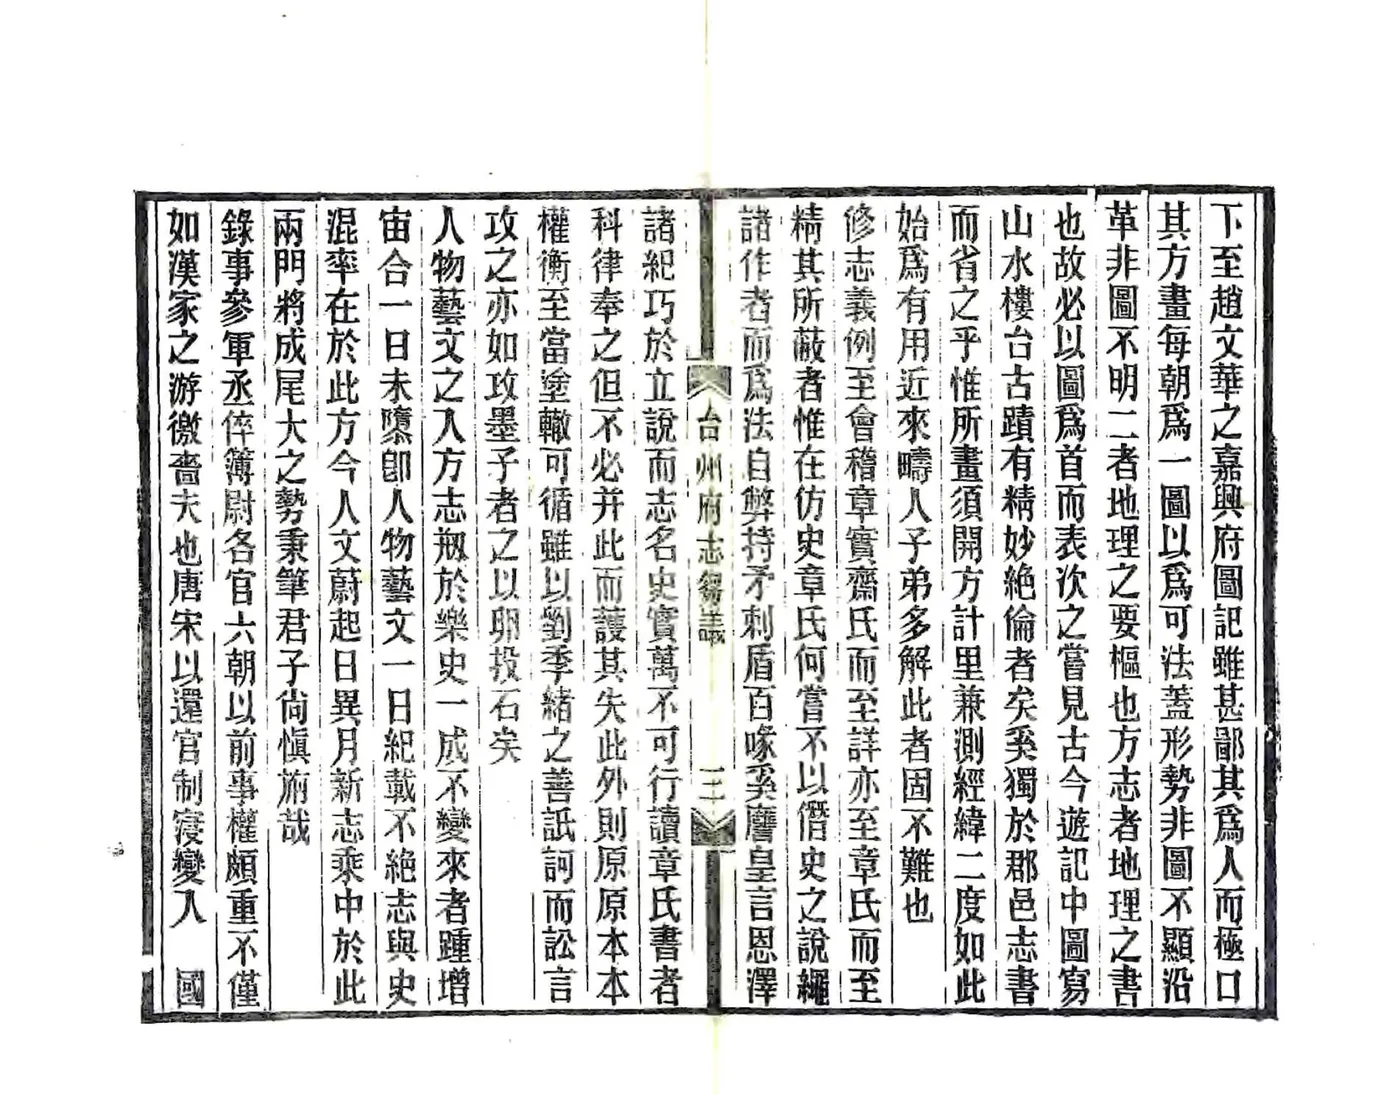 下至趙文華之嘉興府圖記雖甚鄙其爲人而極口
其方畫每朝爲一圖以爲可法蓋形勢非圖不顯沿
革非圖不明二者地理之要樞也方志者地理之書
也故必以圖爲首而表次之嘗見古今遊記中圖寫
山水樓台古蹟有精妙絶倫者矣奚獨於郡邑志書
而省之乎惟所畫須開方計里兼測經緯二度如此
始爲有用近來疇人子弟多解此者固不難也
修志義例至會稽章實齋氏而至詳亦至章氏而至
精其所蔽者惟在仿史章氏何嘗不以僭史之說繩
諸作者而爲法自弊持矛刺盾百喙奚譍皇言恩澤
台州府志芻議
三
諸紀巧於立說而志名史實萬不可行讀章氏書者
科律奉之但不必并此而護其失此外則原原本本
權衡至當塗轍可循雖以劉季緒之善詆訶而訟言
攻之亦如攻墨子者之以卵投石矣
人物藝文之入方志剏於樂史一成不變來者踵增
宙合一日未隳卽人物藝文一日紀載不絶志與史
混率在於此方今人文蔚起日異月新志乘中於此
兩門將成尾大之勢秉筆君子尙愼旃哉
錄事參軍丞倅簿尉各官六朝以前事權頗重不僅
如漢家之游徼嗇夫也唐宋以還官制寖變入 國